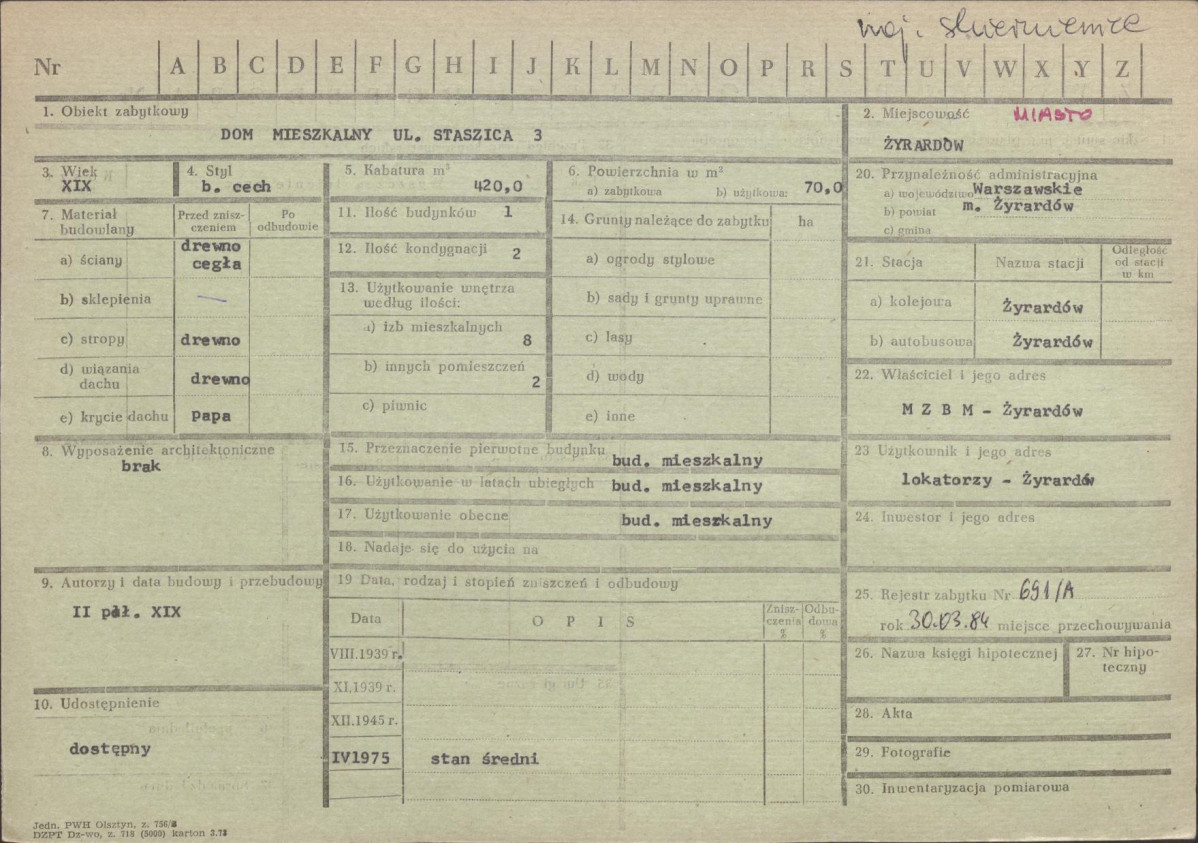 woj. skierniewice
Nr A B C D E F G H I J K L M N O P R S T U V W X Y Z
1. Obiekt zabytkowy
DOM MIESZKALNY UL. STASZICA 3
2. Miejscowość MIASTO
ŻYRARDÓW
3. Wiek
XIX
4. Styl
b. cech
5. Kabatura m³
420,0
6. Powierzchnia w m²
a) zabytkowa b) użytkowa: 70,0
20. Przynależność administracyjna
a) województwo Warszawskie
b) powiat m. Żyrardów
c) gmina
7. Materiał budowlany
Przed zniszczeniem
Po odbudowie
a) ściany drewno
cegła
b) sklepienia —
c) stropy drewno
d) wiązania dachu drewno
e) krycie dachu papa
11. Ilość budynków 1
12. Ilość kondygnacji 2
13. Użytkowanie wnętrza
według ilości:
a) izb mieszkalnych
8
b) innych pomieszczeń
2
c) piwnic
14. Grunty należące do zabytku ha
a) ogrody stylowe
b) sady i grunty uprawne
c) lasy
d) wody
e) inne
21. Stacja Nazwa stacji Odległość od stacji w km
a) kolejowa Żyrardów
b) autobusowa Żyrardów
22. Właściciel i jego adres
M Z B M - Żyrardów
8. Wyposażenie architektoniczne
brak
15. Przeznaczenie pierwotne budynku
bud. mieszkalny
16. Użytkowanie w latach ubiegłych bud. mieszkalny
17. Użytkowanie obecne bud. mieszkalny
18. Nadaje się do użycia na
23 Użytkownik i jego adres
lokatorzy - Żyrardów
24. Inwestor i jego adres
9. Autorzy i data budowy i przebudowy
II pół. XIX
19 Data, rodzaj i stopień zniszczeń i odbudowy
Data O P I S Zniszczenia % Odbudowa %
VIII.1939 r.
XI.1939 r.
XII.1945 r.
IV1975 stan średni
25. Rejestr zabytku Nr 691/A
rok 30.03.84 miejsce przechowywania
26. Nazwa księgi hipotecznej
27. Nr hipoteczny
10. Udostępnienie
dostępny
28. Akta
29. Fotografie
30. Inwentaryzacja pomiarowa
Jedn. PWH Olsztyn, z. 756/
DZPT Dz-wo, z. 718 (5000) karton 3.73